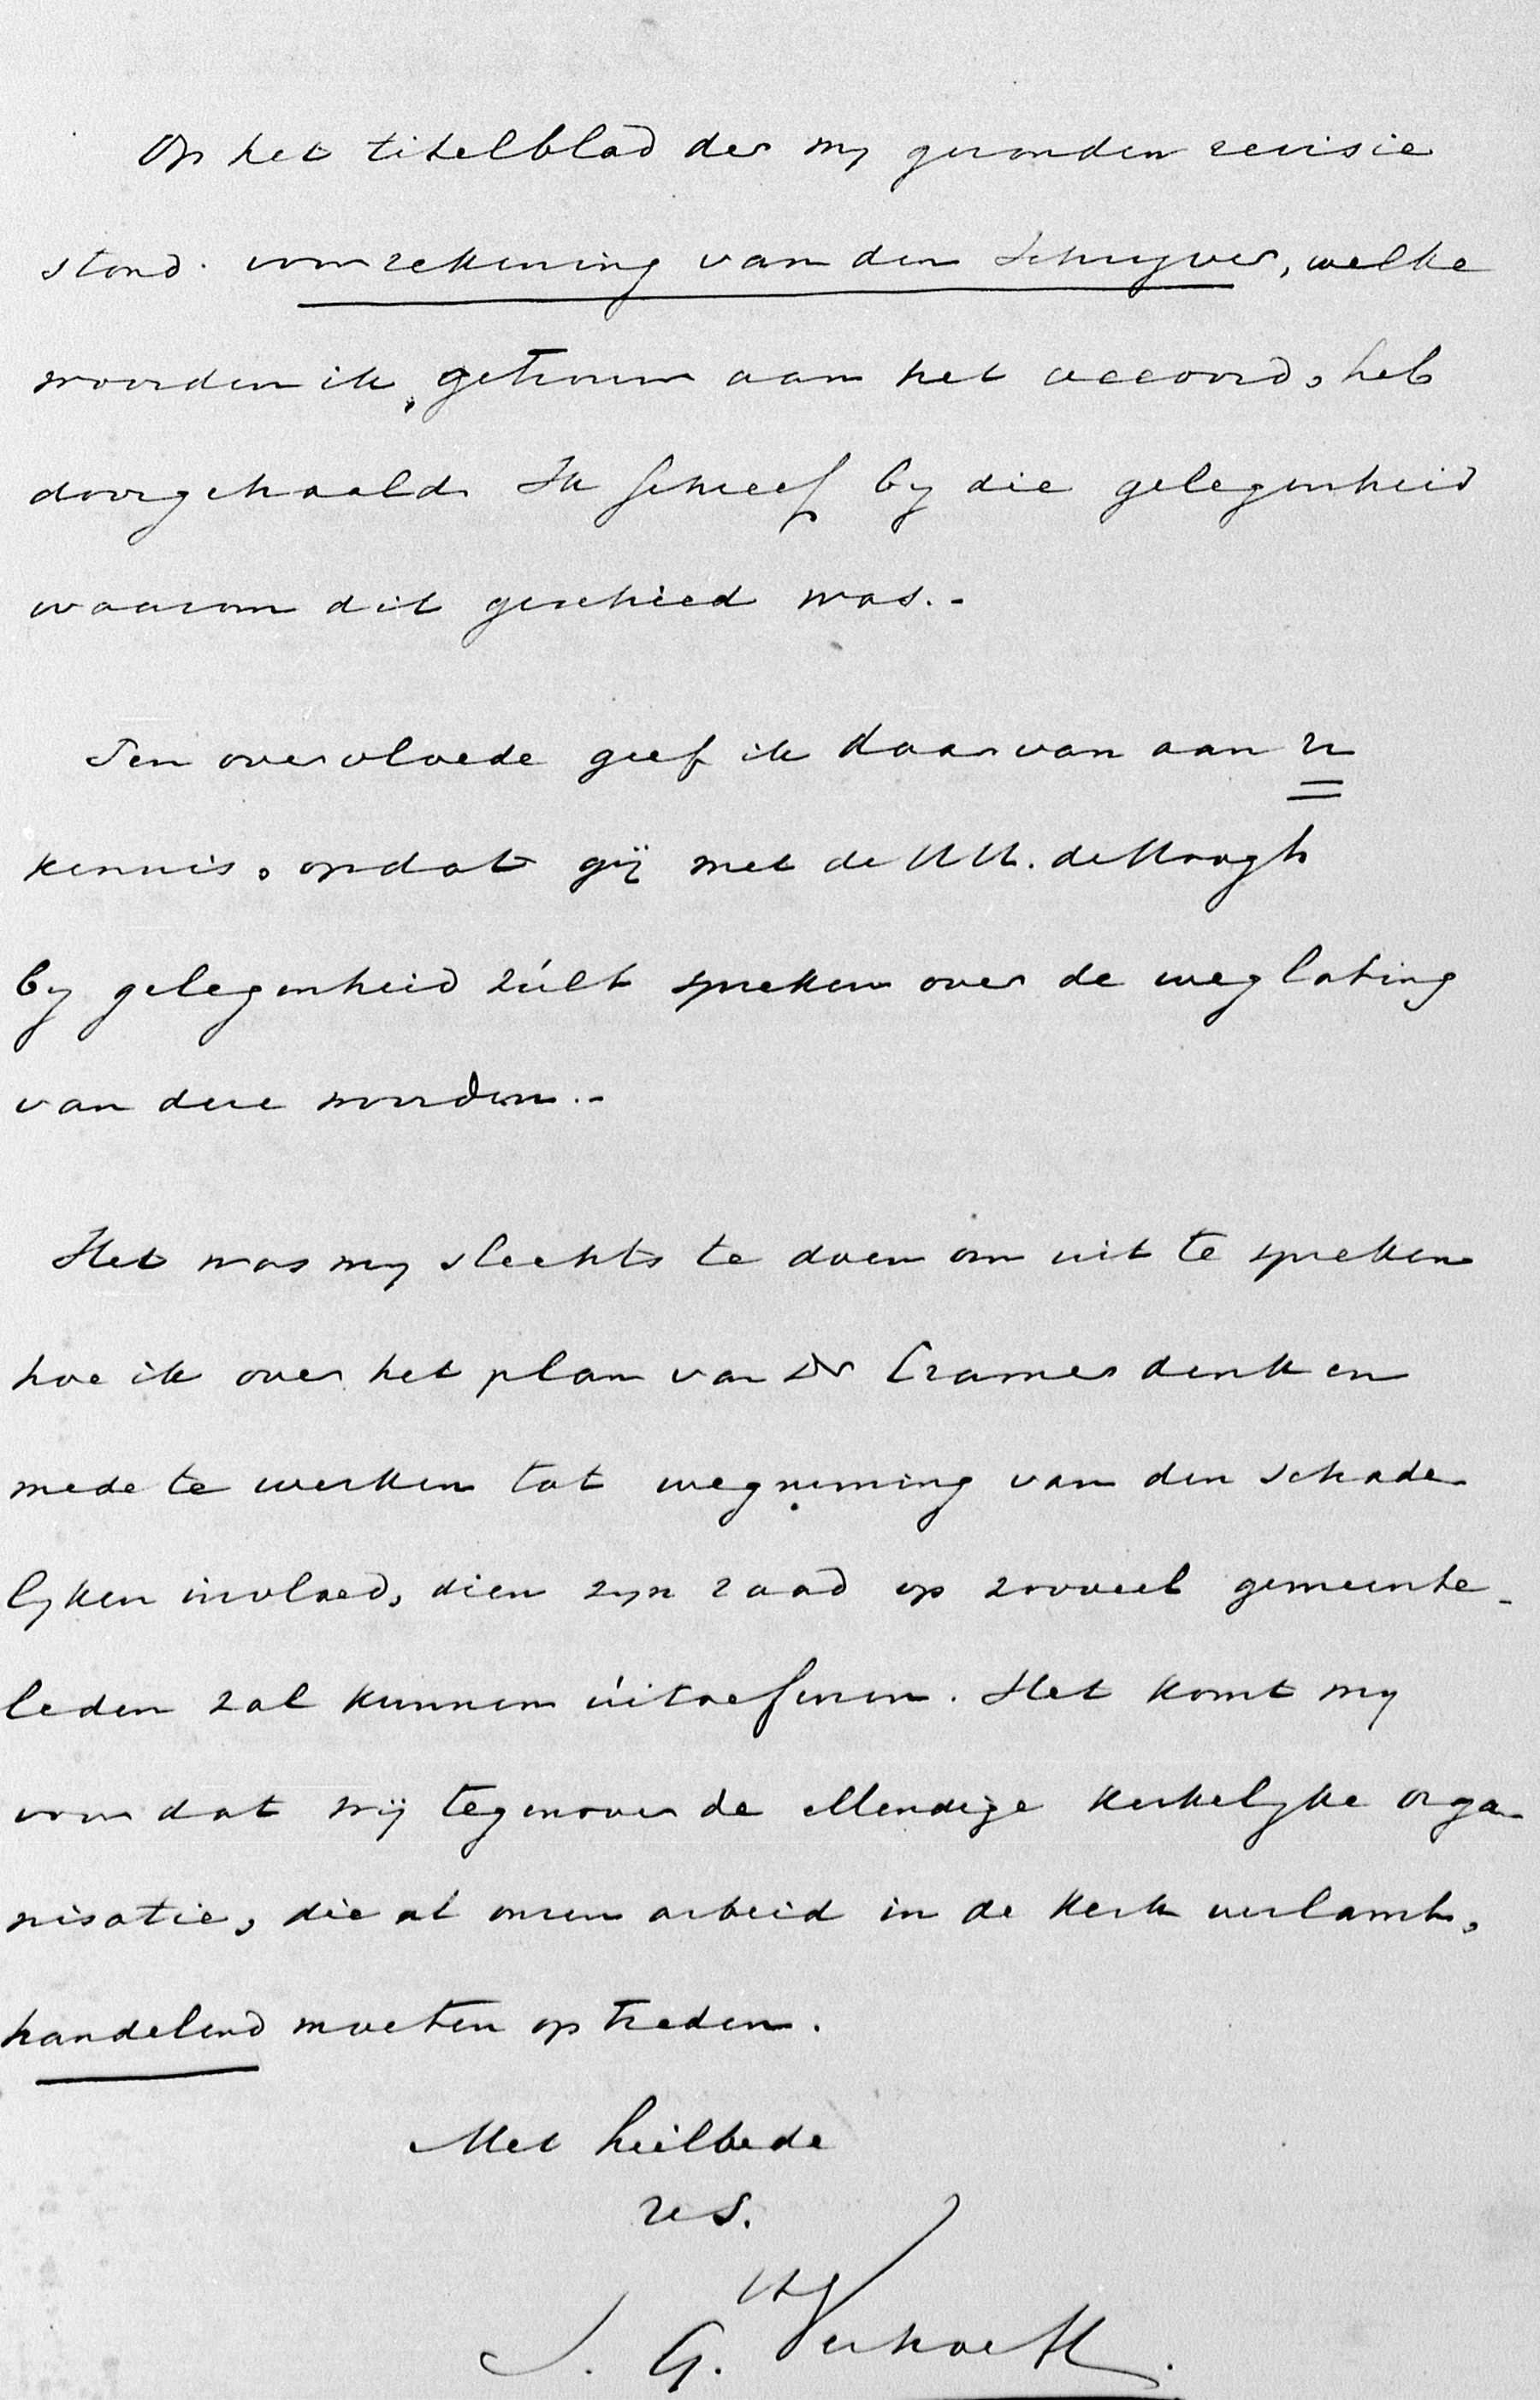 Op het titelblad der my gezonden revisie
stond. voor rekening van den Schryver, welke
woorden ik, getrouw aan het accoord, heb
doorgehaald. Ik schreef by die gelegenheid
waarom dit geschied was.-
Ten overvloede geef ik daarvan aan u
kennis, opdat gij met de HH. de Hoogh
by gelegenheid zúlt spreken over de weglating
van deze woorden.-
Het was my slechts te doen om uit te spreken
hoe ik over het plan van Dr Cramer denk en
mede te werken tot wegneming van den schade
lyken invloed, dien zyn raad op zooveel gemeente-
leden zal kunnen úitoefenen. Het komt my
voor dat wij tegenover de ellendige kerkelyke orga
nisatie, die al onzen arbeid in de Kerk verlamt,
handelend moeten optreden.
Met heilbede
J. G. Verhoeff.